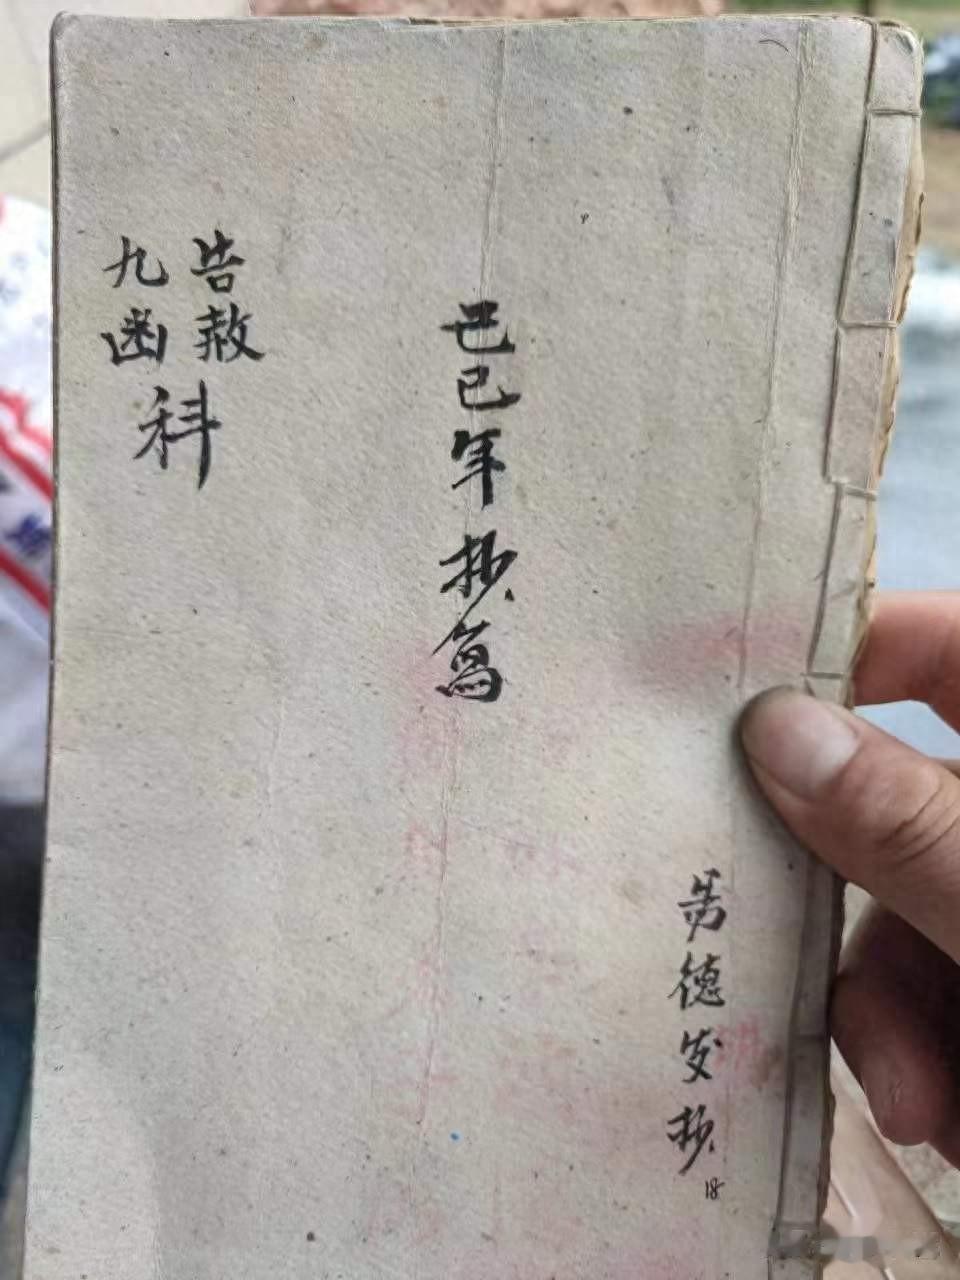 德发抄
18
己巳年抄寫
告赦
九幽
科